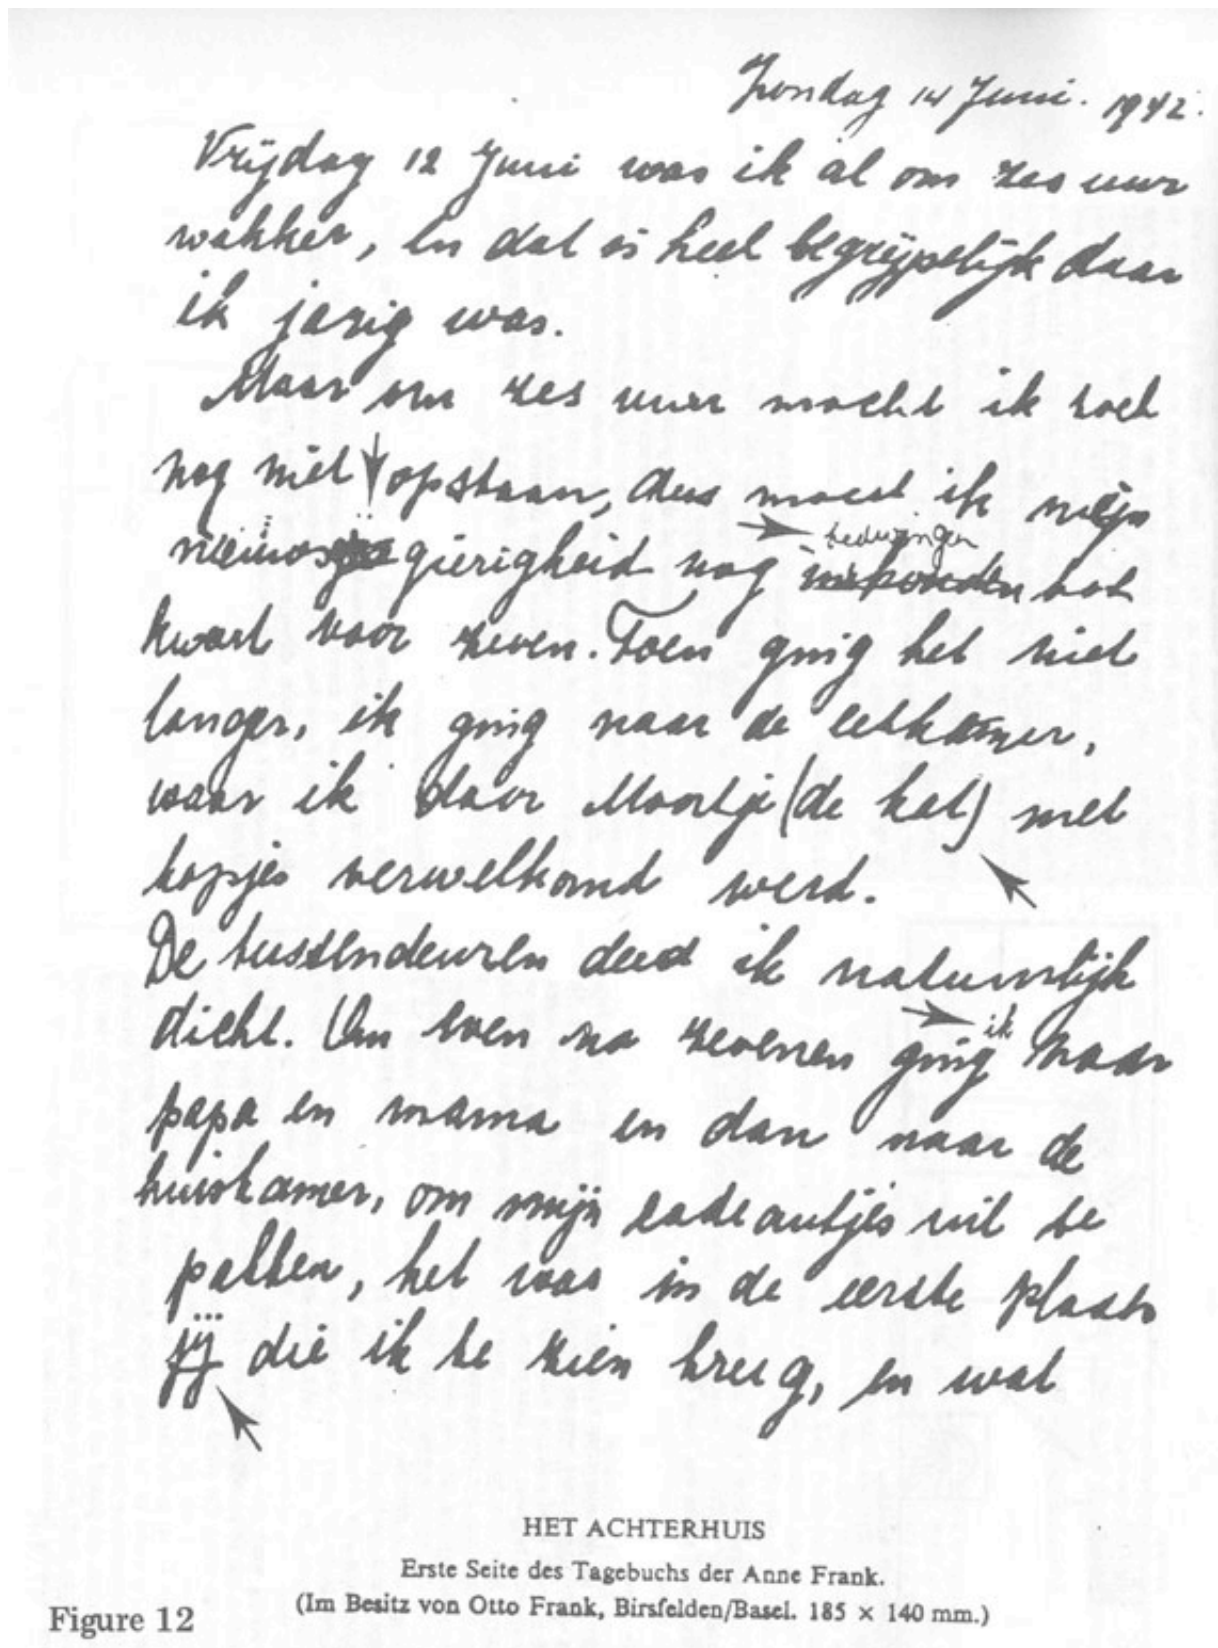 Zondag 14 Juni. 1942.
Vrijdag 12 Juni was ik al om zes uur
wakker, en dat is heel begrijpelijk daar
ik jarig was.
Maar om zes uur mocht ik toch
nog niet opstaan, dus moest ik mijn
bedwingen
nieuwsgierigheid nog inhouden tot
kwart voor zeven. Toen ging het niet
langer, ik ging naar de eetkamer,
waar ik door Moortje (de kat) met
kopjes verwelkomd werd.
De tussendeuren deed ik natuurlijk
dicht. Om even na zevenen ging ik naar
papa en mama en dan naar de
huiskamer, om mijn cadeautjes uit te
pakken, het was in de eerste plaats
jij die ik te zien kreeg, en wat
HET ACHTERHUIS
Erste Seite des Tagebuchs der Anne Frank.
(Im Besitz von Otto Frank, Birsfelden/Basel. 185 × 140 mm.)
Figure 12